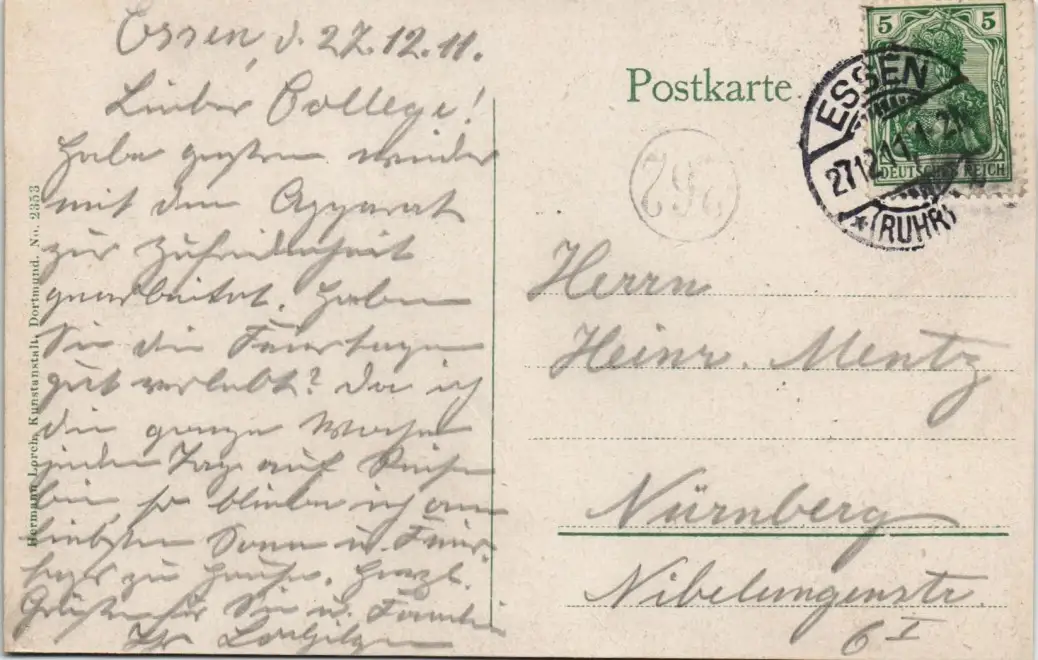 Essen, d. 27.12.11.
Lieber College!
Habe gestern wieder
mit dem Apparat
zur Zufriedenheit
gearbeitet. Haben
Sie die Feiertage
gut verlebt? Da ich
die ganze Woche
jeden Tag auf Reisen
bin, so bleibe ich am
liebsten Sonn u. Feier-
tags zu Hause. Herzl.
Grüße für Sie u. Familie
Ihr
Hermann Lorch, Kunstanstalt, Dortmund. No. 2353
Postkarte
5 5
DEUTSCHES REICH
ESSEN
27.12.11.
*(RUHR)
795
Herrn
Heinr. Mentz
Nürnberg
Nibelungenstr.
6 I